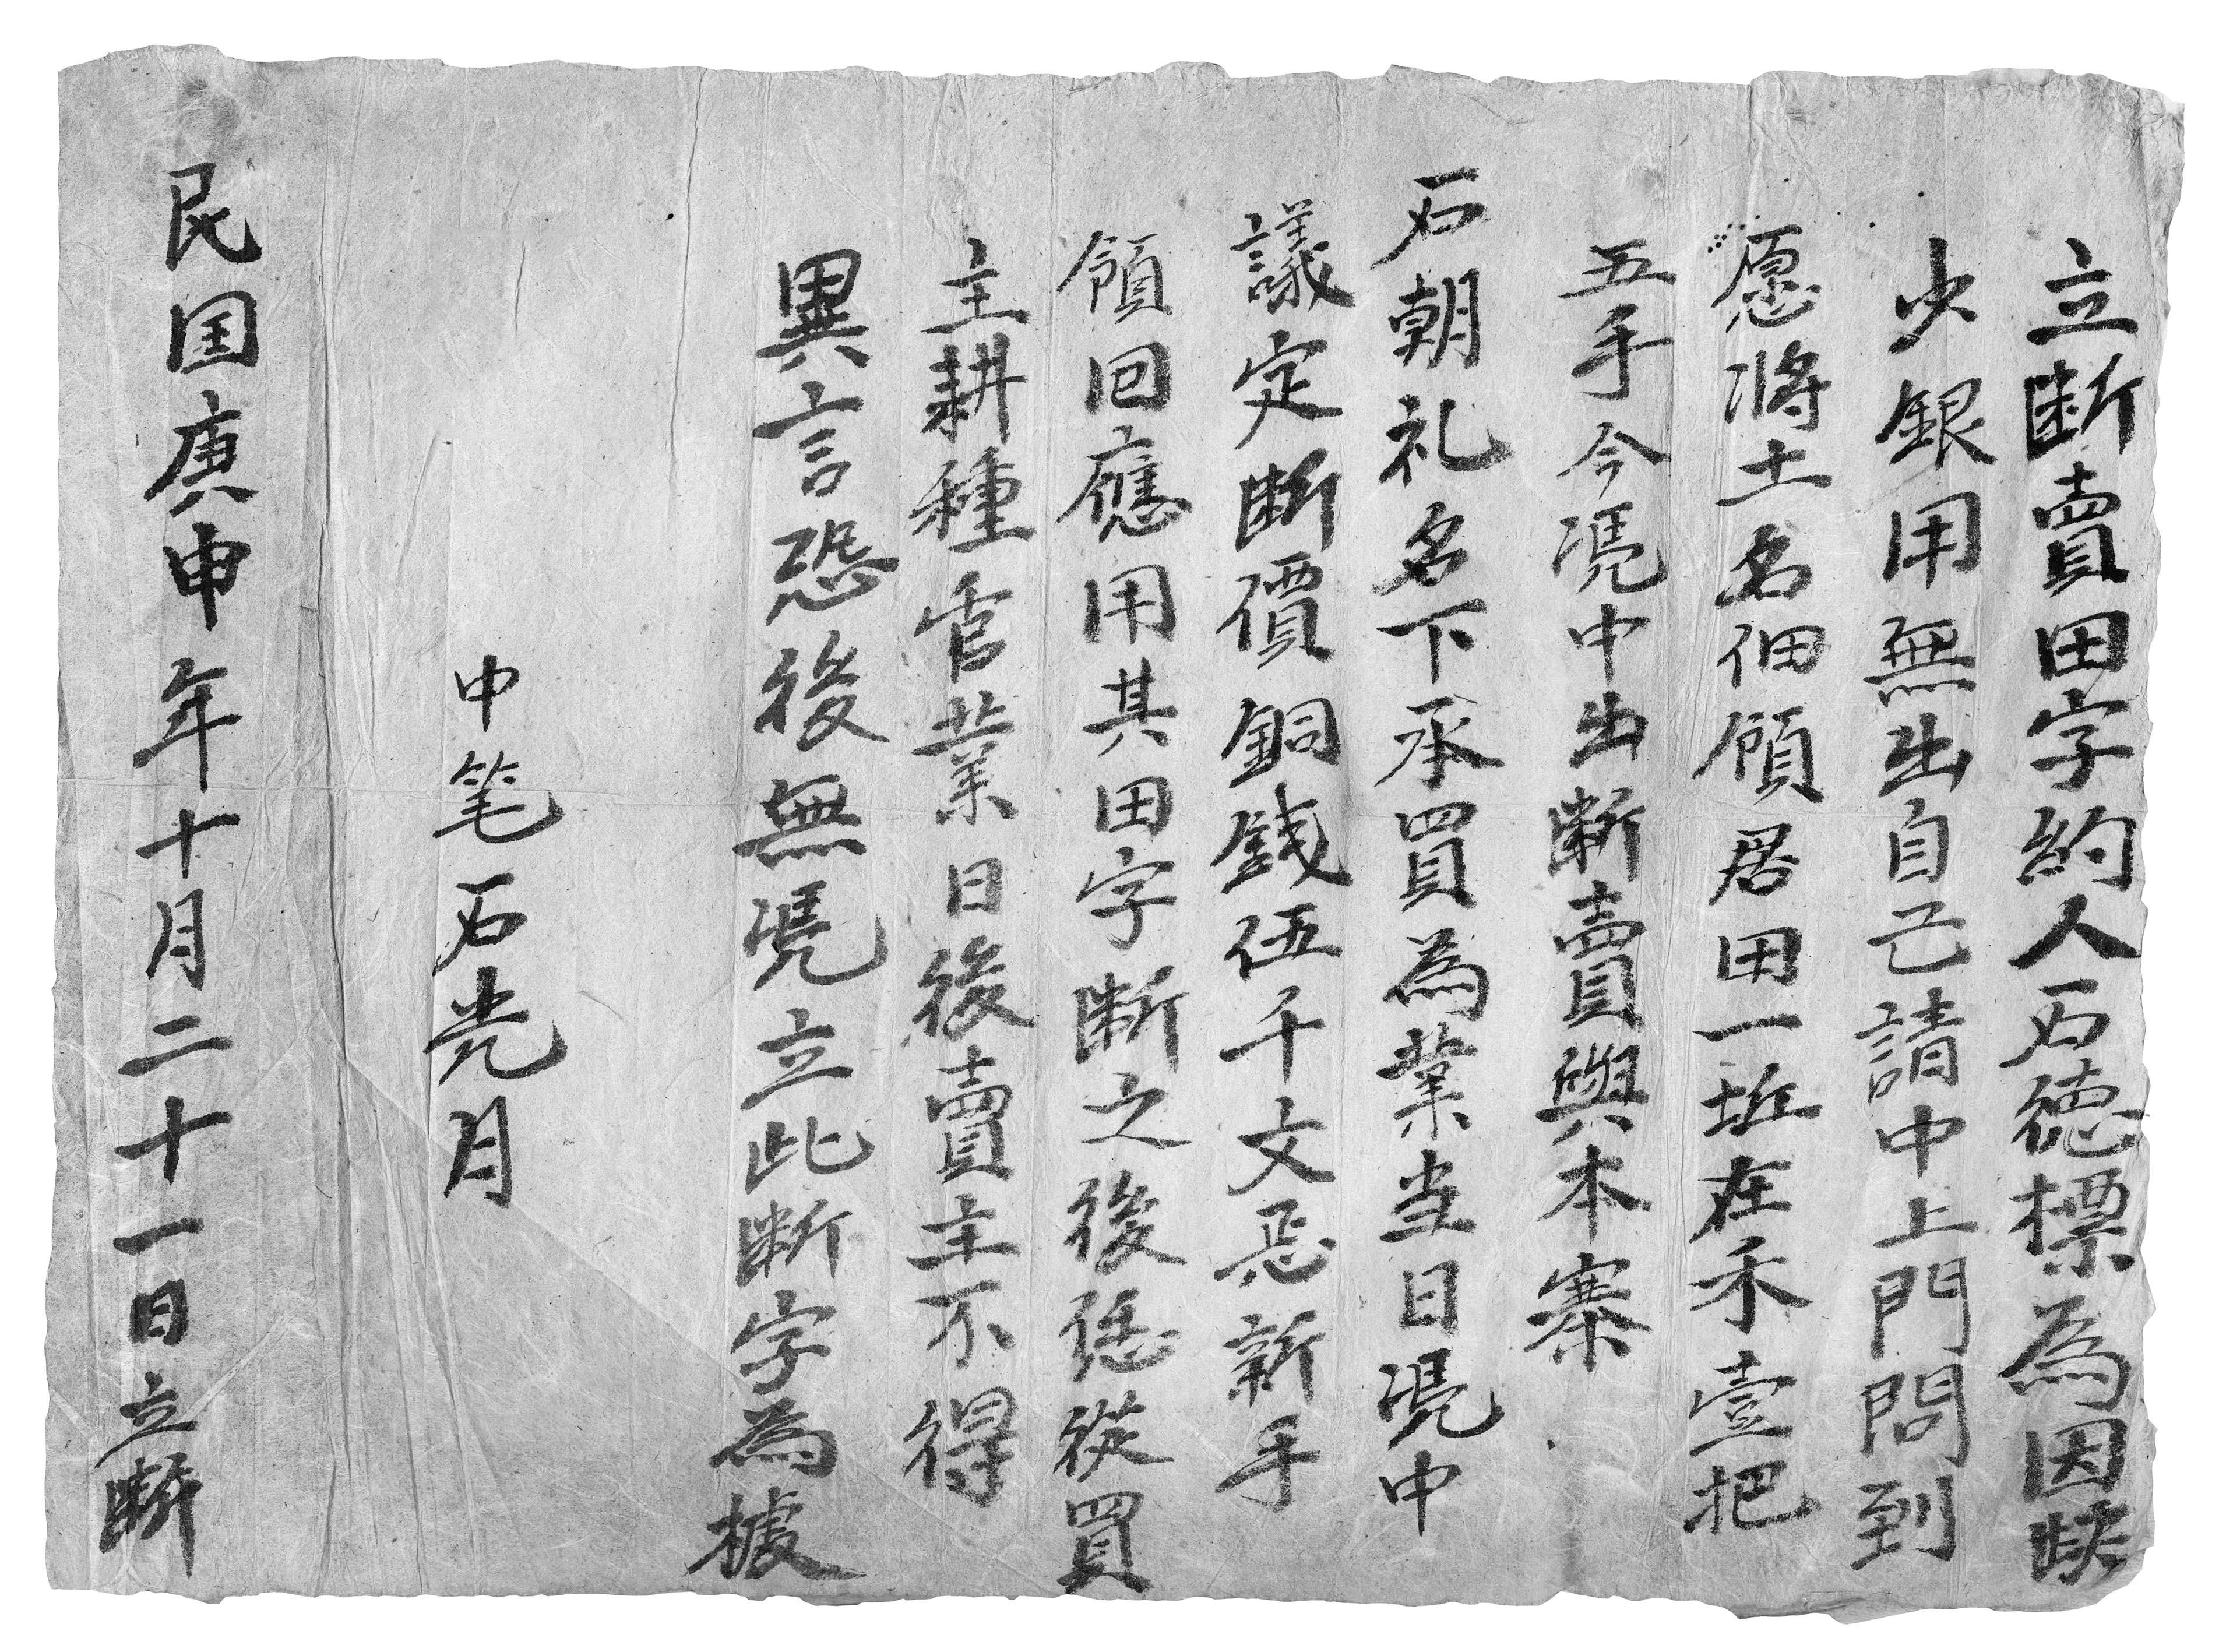 立断賣田字約人石德標為因缺
少銀用無出自己請中上門問到
愿將土名佃領居田一坵在禾壹把
五手今凴中出断賣與本寨
石朝礼名下承買為業当日凴中
議定断價銅銭伍千文恶新手
領回應用其田字断之後恁從買
主耕種官業日後賣主不得
異言恐後無凴立此断字為據
中笔石光月
民国庚申年十月二十一日立断